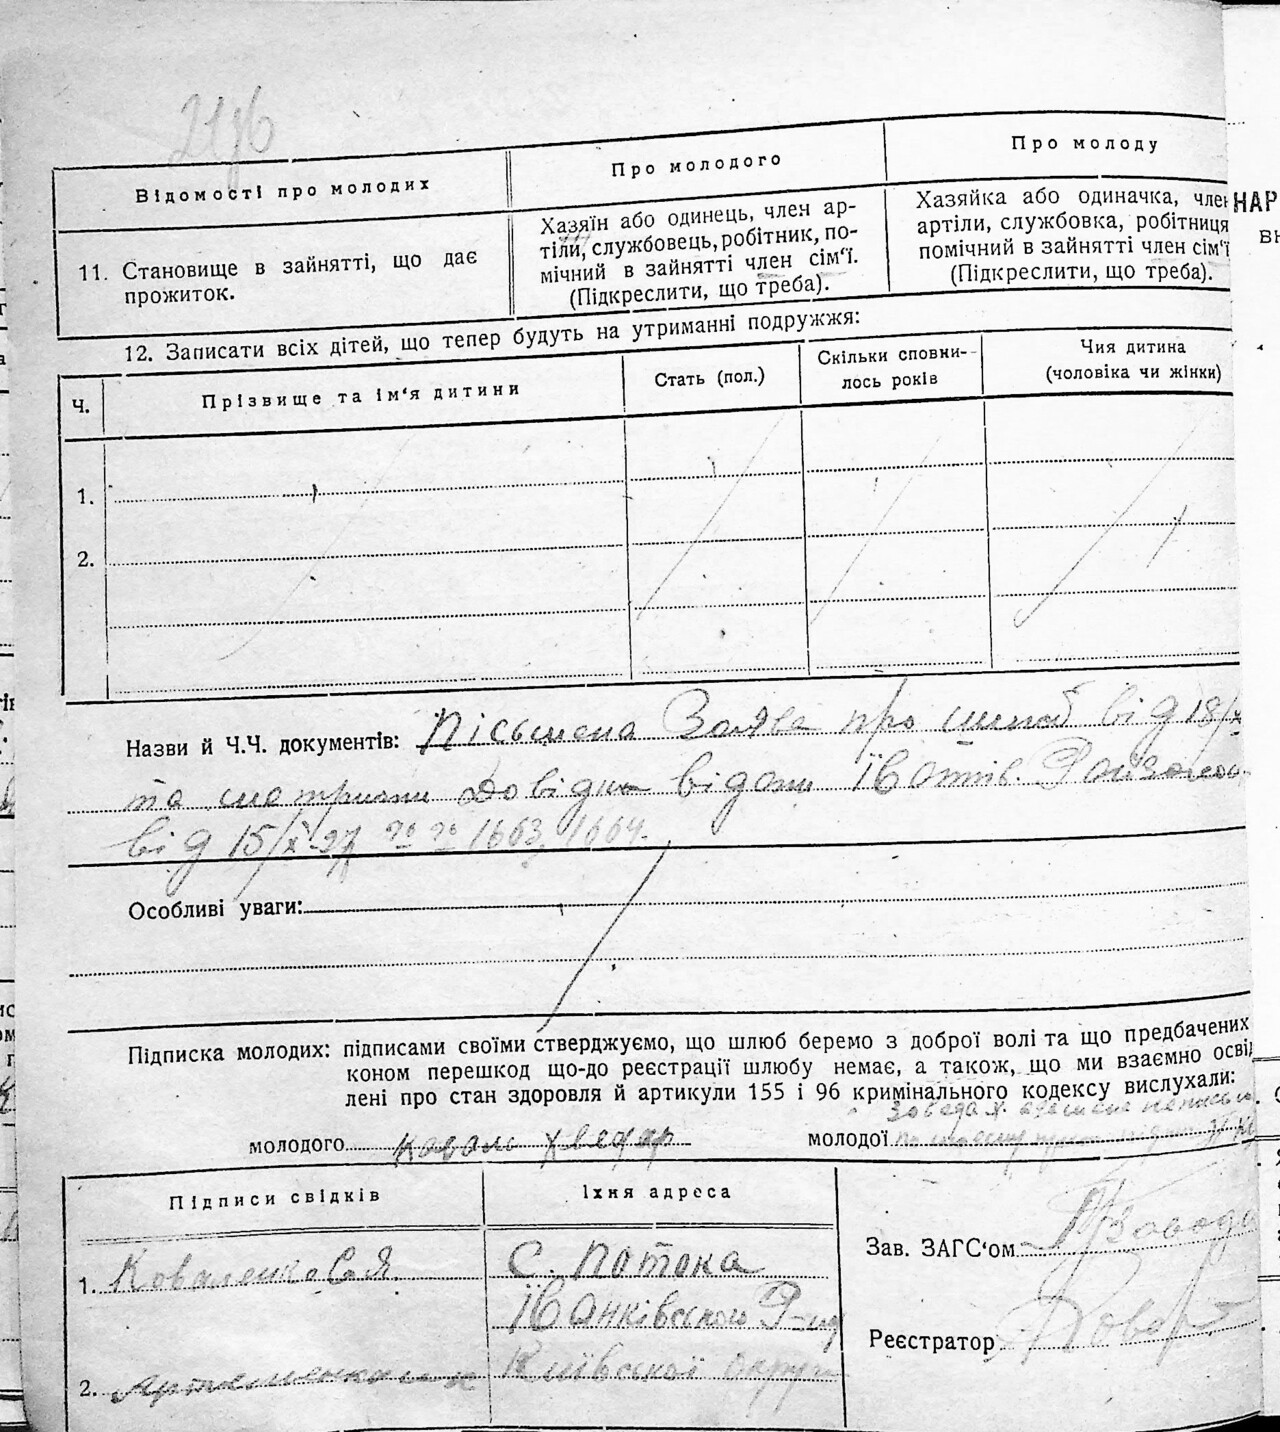 Відомості про молодих
Про молодого
Про молоду
11. Становище в зайнятті, що дає
прожиток.
Хазяїн або одинець, член ар-
тіли, службовець, робітник, по-
мічний в зайнятті член сім'ї.
(Підкреслити, що треба).
Хазяйка або одиначка, член
артіли, службовка, робітниця
помічний в зайнятті член сім'ї
(Підкреслити, що треба).
НАР
12. Записати всіх дітей, що тепер будуть на утриманні подружжя:
Ч.
Прізвище та ім'я дитини
Стать (пол.)
Скільки сповни-
лось років
Чия дитина
(чоловіка чи жінки)
1.
2.
Назви й Ч.Ч. документів: Пісьмена Заява про шлюб від 18/X
та довідки відани Іванків.
від 15/X-27 1663, 1664.
Особливі уваги:
Підписка молодих: підписами своїми стверджуємо, що шлюб беремо з доброї волі та що предбачених
коном перешкод що-до реєстрації шлюбу немає, а також, що ми взаємно осві
лені про стан здоровля й артикули 155 і 96 кримінального кодексу вислухали:
молодого Коваль Хведар
молодої
Підписи свідків
Їхня адреса
1. Коваленко С Я
С. Потока
Іванківського Р-ну
2.
Київської округи
Зав. ЗАГС'ом
Реєстратор